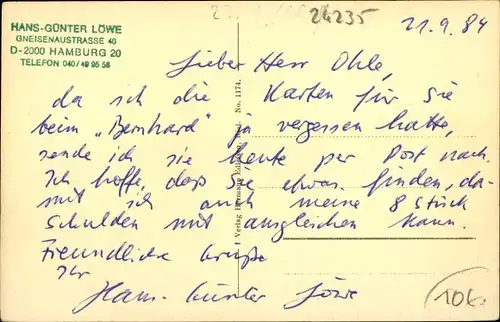 HANS-GÜNTER LÖWE
GNEISENAUSTRASSE 40
D-2000 HAMBURG 20
TELEFON 040/49 95 58
24235
21.9.84
Lieber Herr Ohle,
da ich die Karten für Sie
beim „Bernhard" ja vergessen hatte,
sende ich sie heute per Post nach.
Ich hoffe, daß Sie etwas finden, da-
mit ich auch meine 8 Stück
Schulden mit ausgleichen kann.
Freundliche Grüße
Ihr
Hans-Günter Löwe
Verlag Hermann No. 1174.
10K